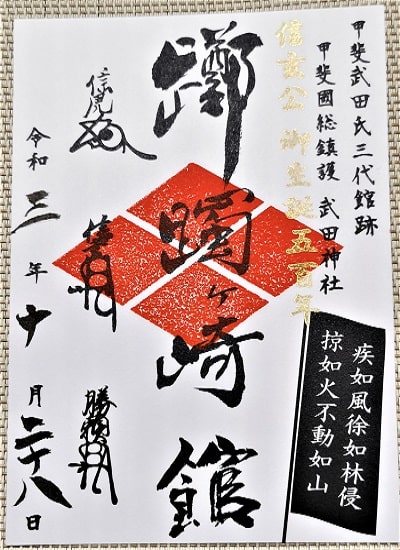 甲斐武田氏三代館跡
甲斐國総鎮護 武田神社
信玄公 御生誕五百年
疾如風徐如林侵
掠如火不動如山
躑躅ヶ崎館
信虎
信玄
勝頼
令和三年十月二十八日